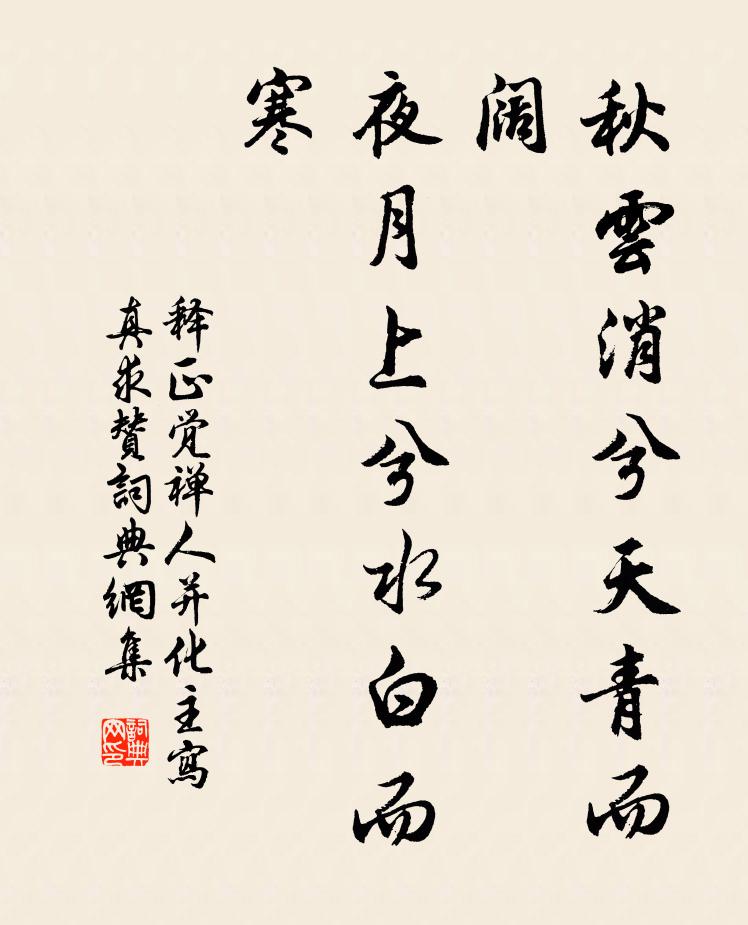 秋雲消兮天青而
阔
夜月上兮水白而
寒
释正觉禅人并化主寫
真求贊詞典網集
詞典網印